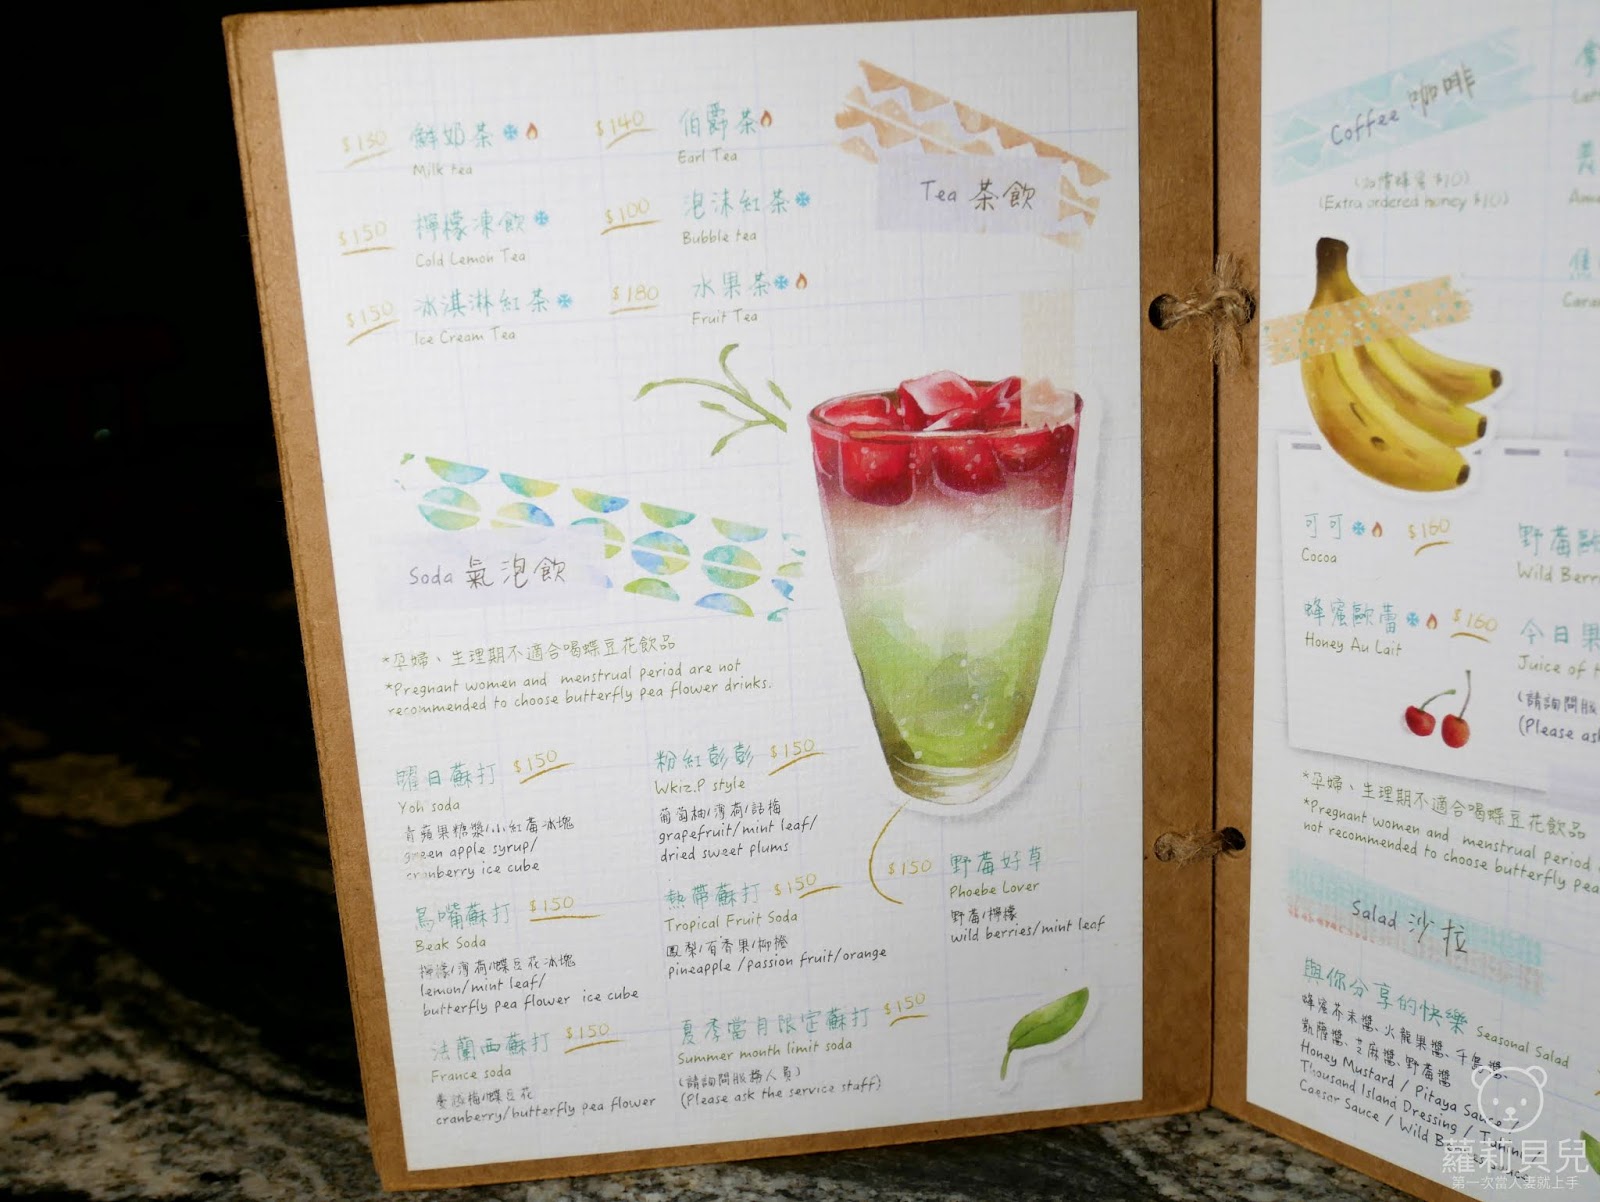 $130 鮮奶茶
Milk tea
$140 伯爵茶
Earl Tea
$150 檸檬凍飲
Cold Lemon Tea
$100 泡沫紅茶
Bubble tea
$150 冰淇淋紅茶
Ice Cream Tea
$180 水果茶
Fruit Tea
Tea 茶飲
Soda 氣泡飲
*孕婦、生理期不適合喝蝶豆花飲品
*Pregnant women and menstrual period are not
recommended to choose butterfly pea flower drinks.
曜日蘇打 $150
Yoh soda
青蘋果糖漿/小紅莓冰塊
green apple syrup/
cranberry ice cube
鳥嘴蘇打 $150
Beak Soda
檸檬/薄荷/蝶豆花冰塊
lemon/mint leaf/
butterfly pea flower ice cube
法蘭西蘇打 $150
France soda
蔓越梅/蝶豆花
cranberry/butterfly pea flower
粉紅彭彭 $150
Wkiz.P style
葡萄柚/薄荷/話梅
grapefruit/mint leaf/
dried sweet plums
熱帶蘇打 $150
Tropical Fruit Soda
鳳梨/百香果/柳橙
pineapple /passion fruit/orange
夏季當月限定蘇打 $150
Summer month limit soda
(請詢問服務人員)
(Please ask the service staff)
$150 野莓好草
Phoebe Lover
野莓/檸檬
wild berries/mint leaf
Coffee 咖啡
(加價蜂蜜 $10)
(Extra ordered honey $10)
可可 $160
Cocoa
蜂蜜歐蕾 $160
Honey Au Lait
野莓歐
Wild Berr
今日果
Juice of t
(請詢問服
(Please as
*孕婦、生理期不適合喝蝶豆花飲品
*Pregnant women and menstrual period
not recommended to choose butterfly pea
Salad 沙拉
與你分享的快樂 Seasonal Salad
蜂蜜芥末醬、火龍果醬、千島醬、
凱薩醬、芝麻醬、野莓醬
Honey Mustard / Pitaya Sauce /
Thousand Island Dressing / Tahini /
Caesar Sauce / Wild
蘿莉貝兒
第一次當人妻就上手